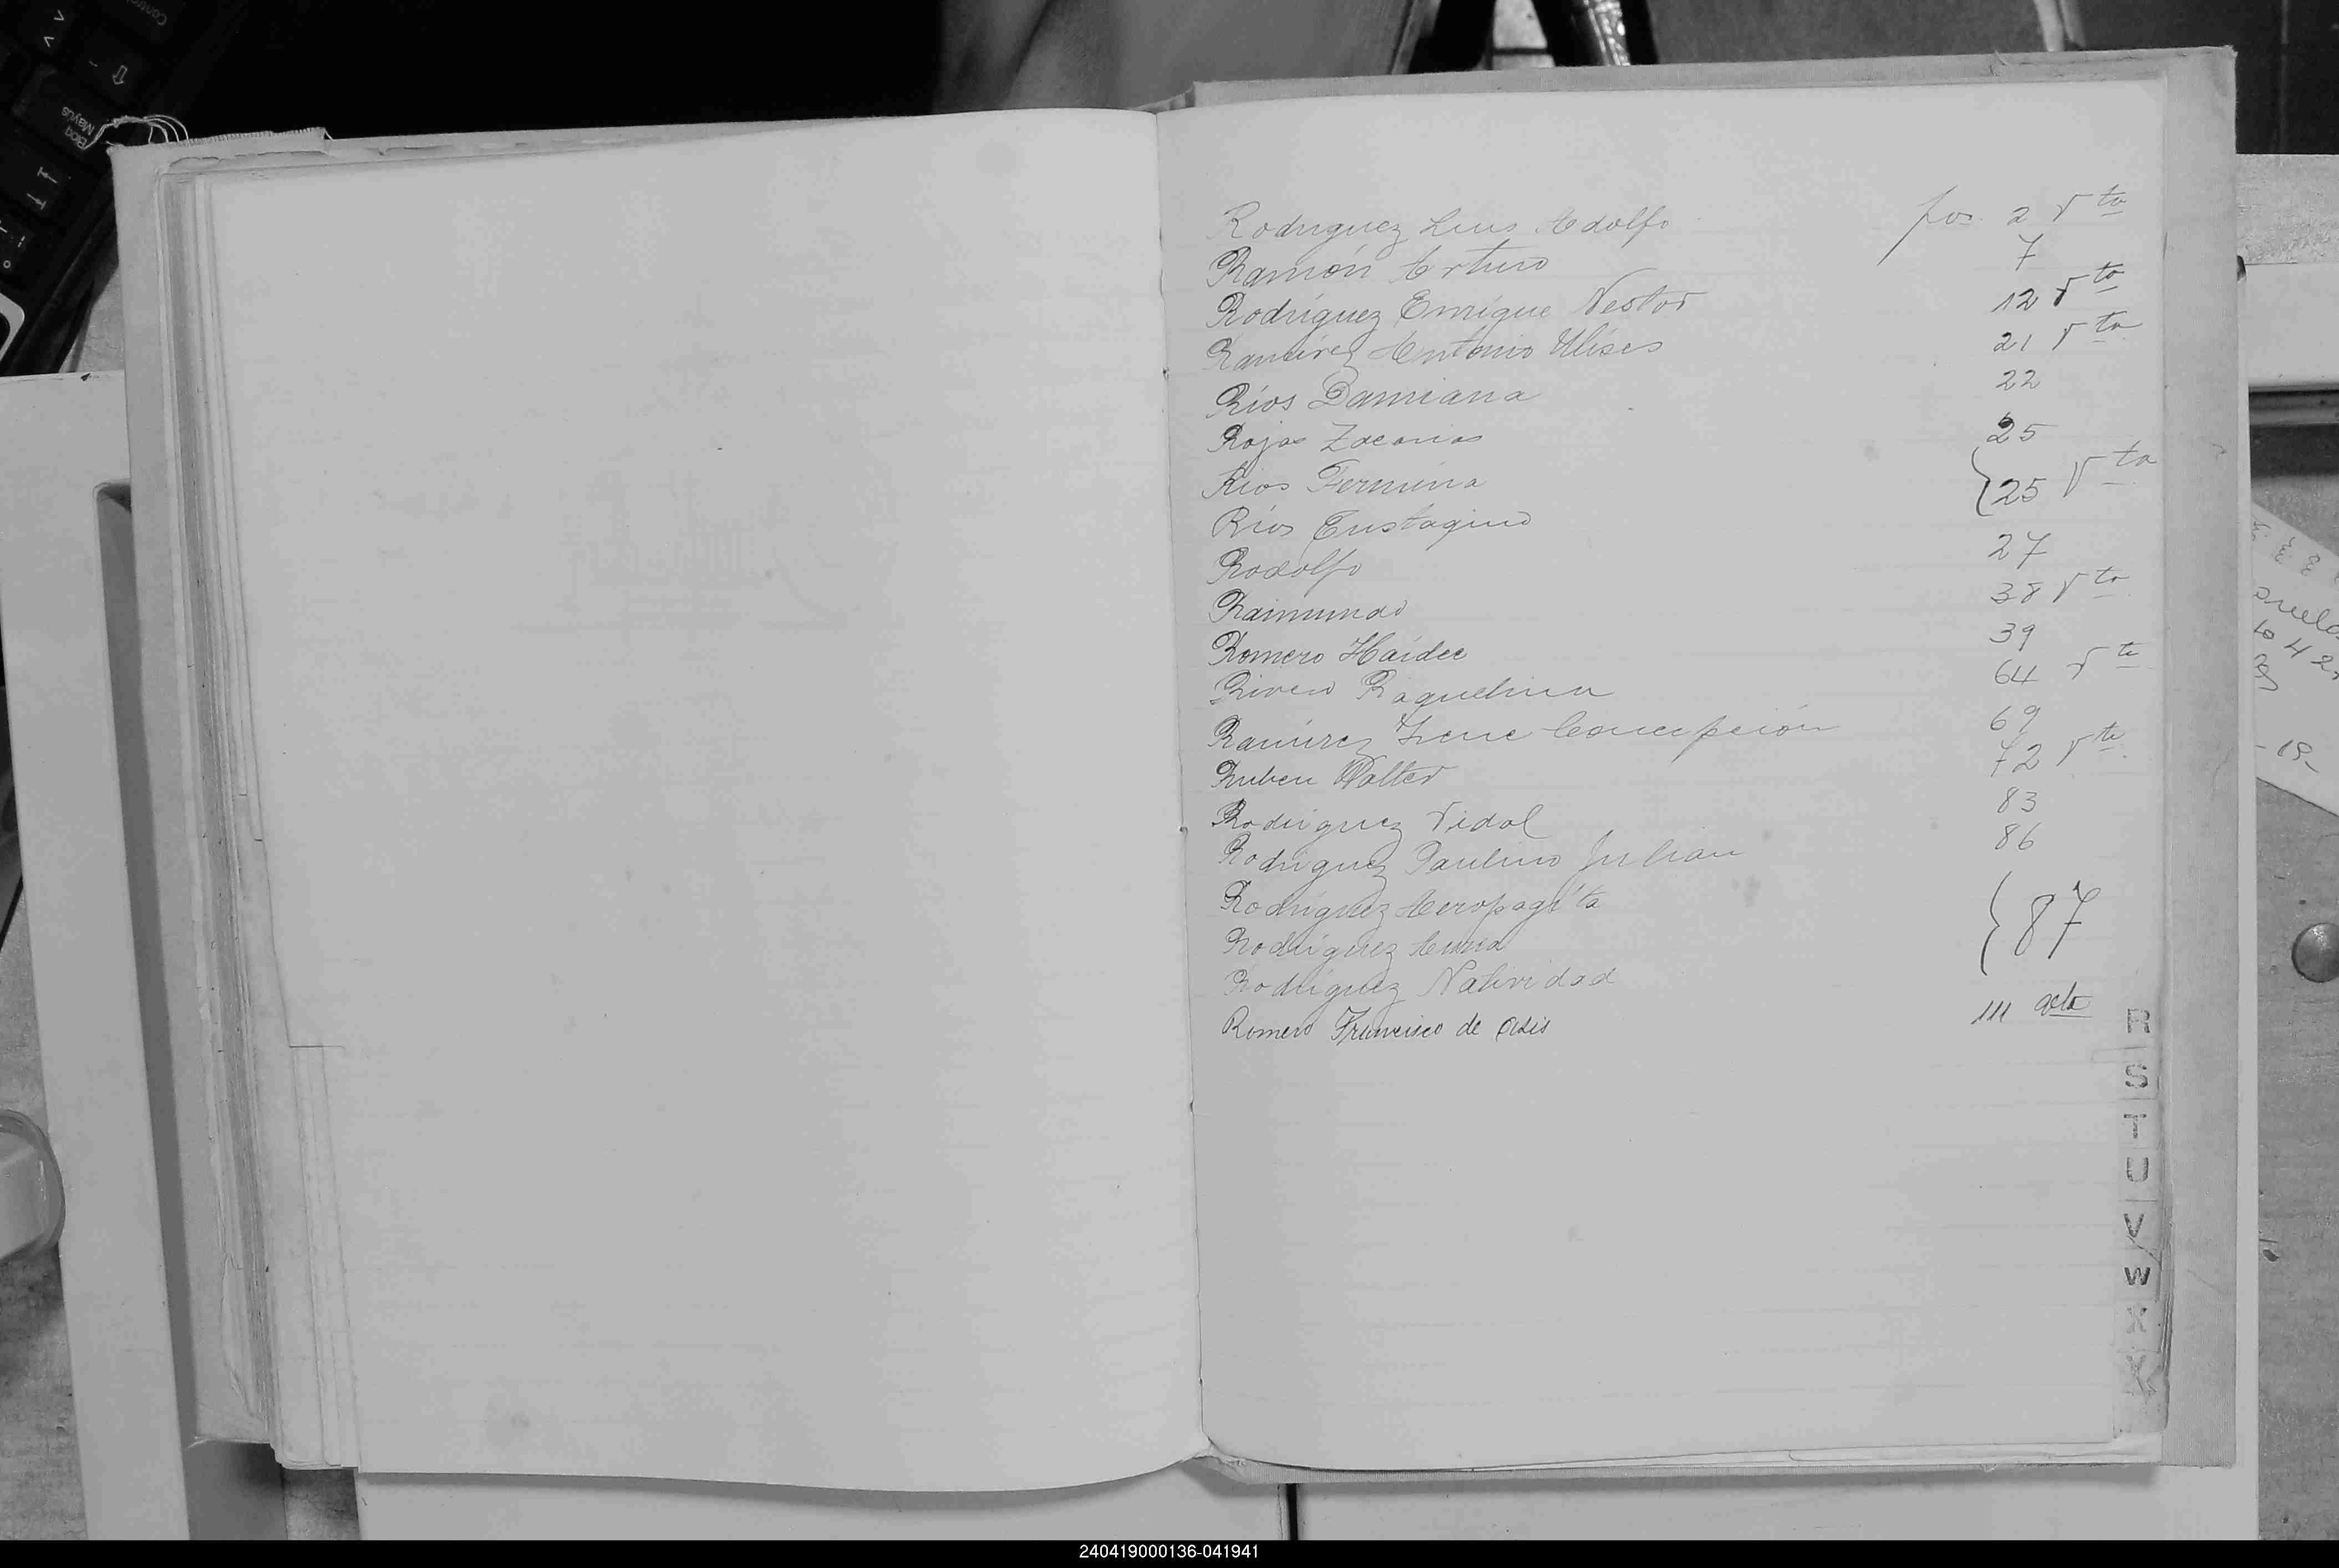 Rodriguez Luis Adolfo fos. 2 Vta
Ramón Arturo 7
Rodriguez Enrique Nestor 12 Vta
Ramirez Antonio Ulises 21 Vta
Ríos Damiana 22
Rojas Zacarias 25
Rios Fermina } 25 Vta
Rios Eustaquio
Rodolfo 27
Raimundo 38 Vta
Romero Haidee 39
Rivero Raquelina 64 Vta
Ramírez Irene Concepción 69
Ruben Walter 72 Vta
Rodriguez Vidal 83
Rodriguez Paulino Julian 86
Rodriguez Aeropagita } 87
Rodriguez
Rodriguez Natividad
Romero Francisco de Asis 111 acta
R
S
T
U
V
W
X
Y
Bloq
Mayus
240419000136-041941